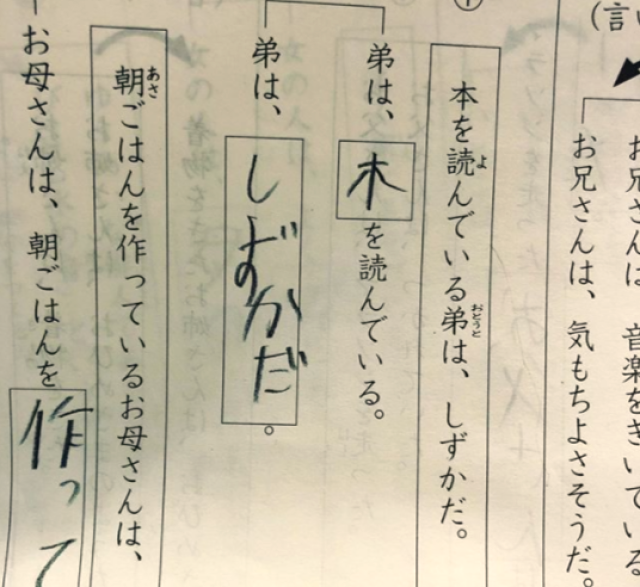 (言い
お兄さんは、音楽をきいている
お兄さんは、気もちよさそうだ。
本を読んでいる弟は、しずかだ。
弟は、木を読んでいる。
弟は、しずかだ。
朝ごはんを作っているお母さんは、
お母さんは、朝ごはんを作って